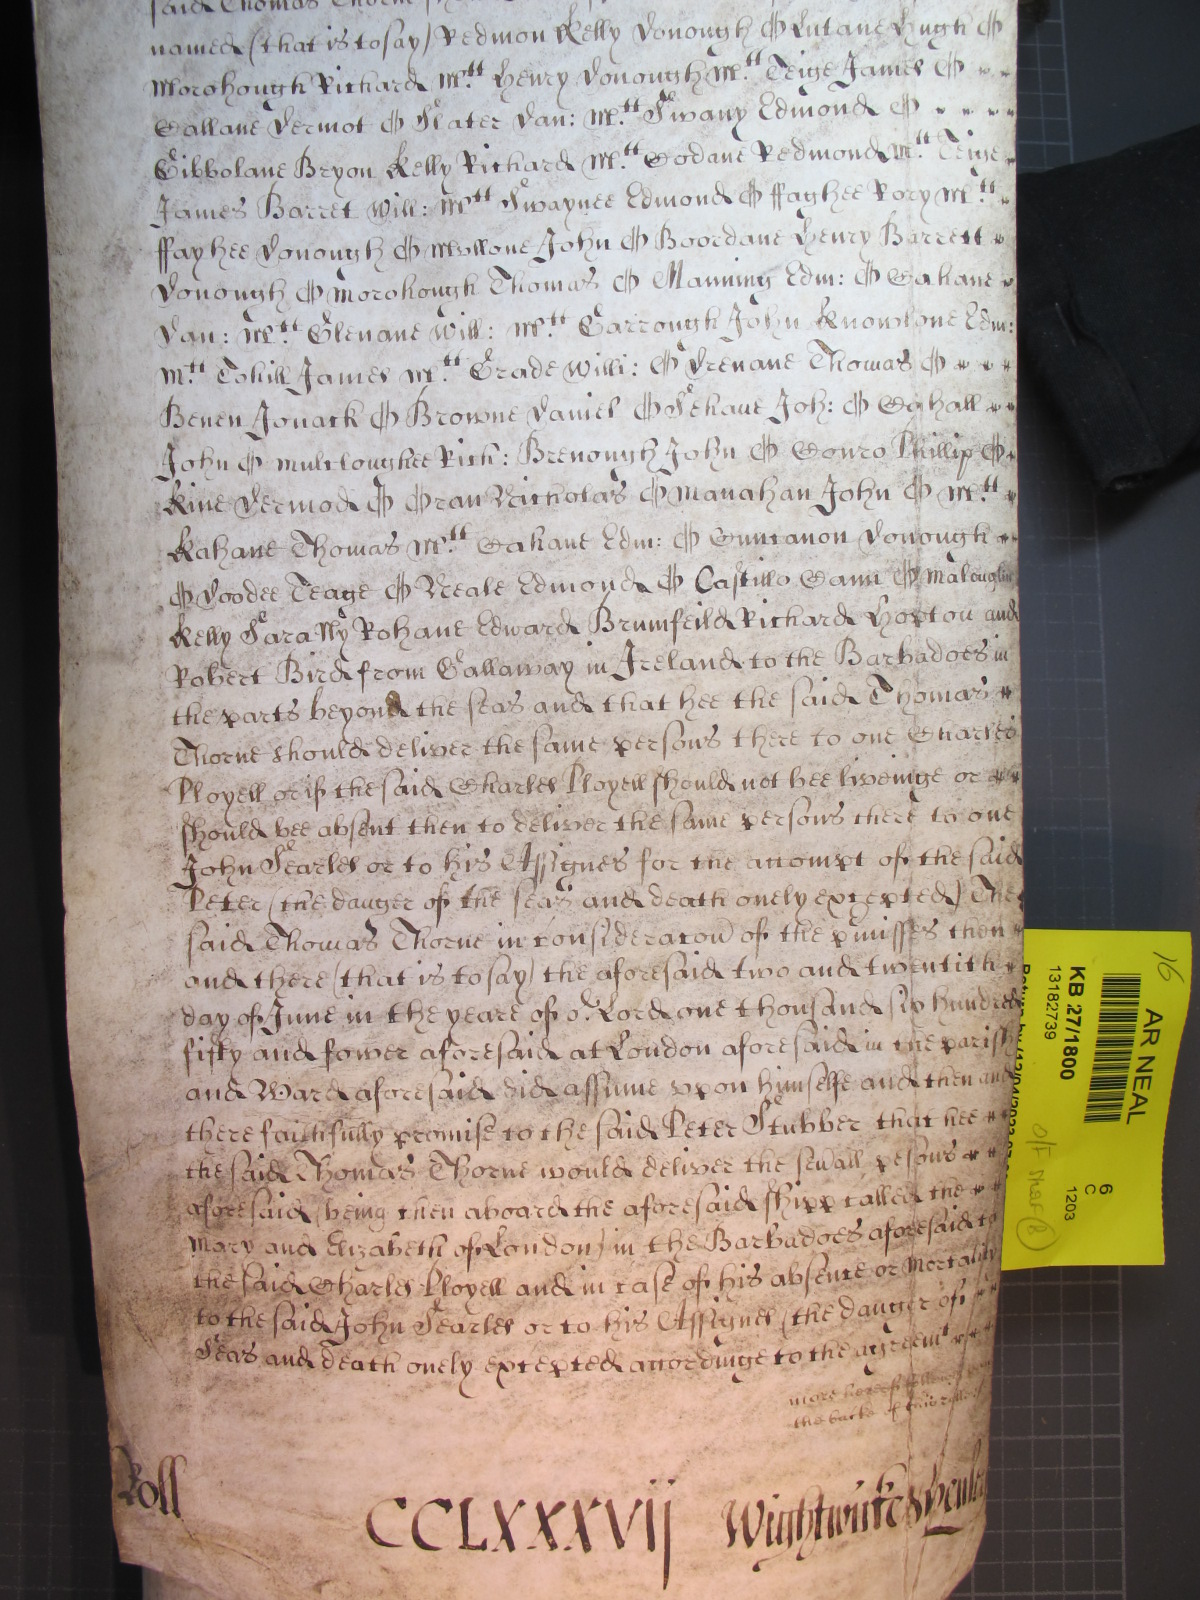 said Thomas Thorne
named (that is to say) Redmon Kelly Donough O Lutane Hugh O
Morohough Richard Mc.tt Henry Donough Mc.tt Teige James O
Callane Dermot O Slater Dan: Mc.tt Swany Edmond O
Gibbolane Bryon Kelly Richard Mc.tt Codane Redmond Mc.tt Teige
James Barret Will: Mc.tt Swaynee Edmond O ffaghee Rory Mc.tt
ffayhee Donough O Mollone John O Boordane Henry Barrett
Donough O Morohough Thomas O Manning Edm: O Cahane
Dan: Mc.tt Glenane Will: Mc.tt Garrough John Knowlone Edm:
Mc.tt Tohill James Mc.tt Grade Willi: O Drenane Thomas O
Benen Jonack O Browne Daniel O Sehane Joh: O Cahall
John O Mulcloughee Rich: Brenough John O Conro Phillip O
Kine Dermod O Cran Nicholas O Manahan John O Mc.tt
Kahane Thomas Mc.tt Cahane Edm: O Cuncanon Donough
O Doodee Teage O Neale Edmond O Castillo Cann O Maloughlin
Kelly Sara Ny Rohane Edward Brumfeild Richard Hopton and
Robert Bird from Gallaway in Ireland to the Barbadoes in
the parts beyond the seas and that hee the said Thomas
Thorne should deliver the same persons there to one Charles
Ployell or if the said Charles Ployell should not bee liveinge or
should bee absent then to deliver the same persons there to one
John Searles or to his Assignes for the accompt of the said
Peter (the danger of the seas and death onely excepted) The
said Thomas Thorne in consideracon of the pmisses then
and there (that is to say) the aforesaid two and twentith
day of June in the yeare of o.r Lord one thousand six hundred
fifty and fower aforesaid at London aforesaid in the parish
and Ward aforesaid did assume upon himselfe and then and
there faithfully promise to the said Peter Stubber that hee
the said Thomas Thorne would deliver the sevall psons
aforesaid (being then aboard the aforesaid shipp called the
Mary and Elizabeth of London) in the Barbadoes aforesaid to
the said Charles Ployell and in case of his absence or Mortality
to the said John Searles or to his Assignes (the danger of
Seas and death onely excepted accordinge to the agreemt
more hereof
the backe of this roll
Roll CCLXXXXVIJ Wightwicke &
16
AR NEAL
KB 27/1800
13182739
6
C
1203